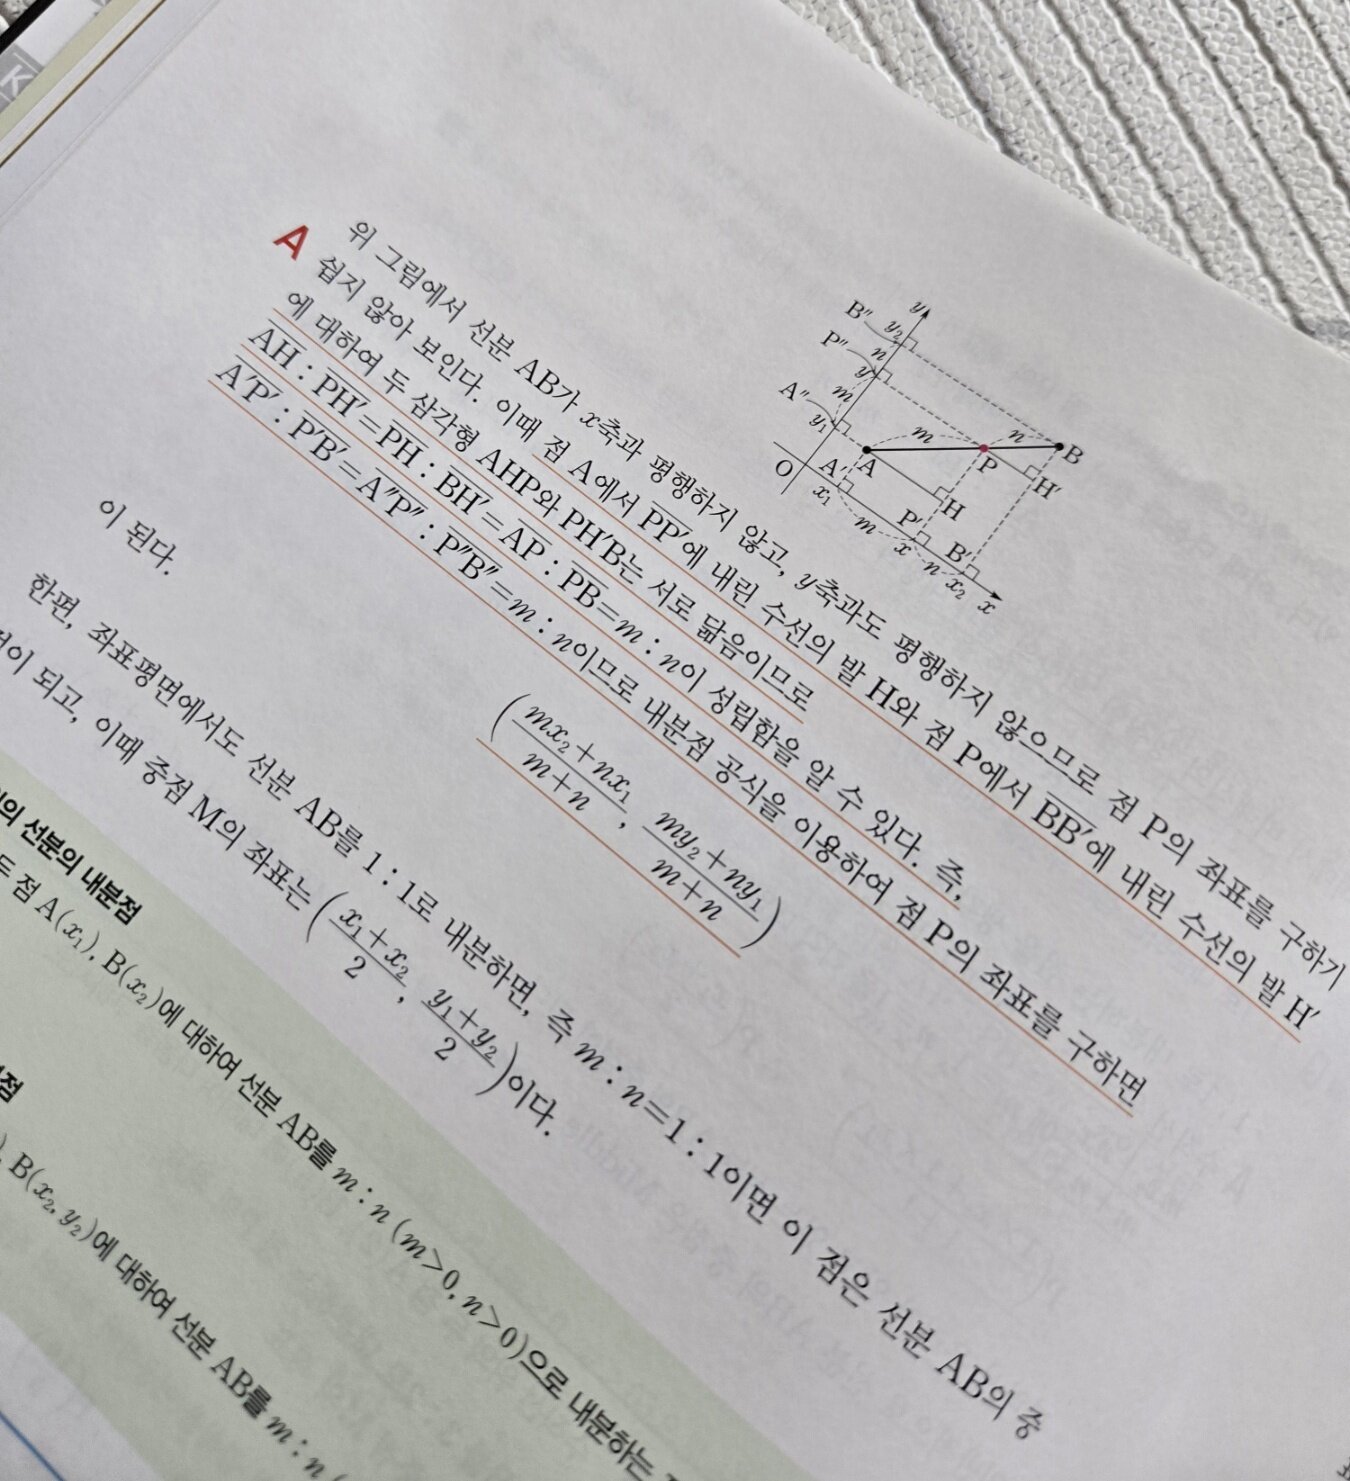 K
B″ y₂ y
P″ n
y
A″ m
y₁
m n
A P B
O A′ H H′
x₁ m P′
x n B′
x₂ x
A 위 그림에서 선분 AB가 x축과 평행하지 않고, y축과도 평행하지 않으므로 점 P의 좌표를 구하기
쉽지 않아 보인다. 이때 점 A에서 PP′에 내린 수선의 발 H와 점 P에서 BB′에 내린 수선의 발 H′
에 대하여 두 삼각형 AHP와 PH′B는 서로 닮음이므로
AH : PH′=PH : BH′=AP : PB=m : n이 성립함을 알 수 있다. 즉,
A′P′ : P′B′=A″P″ : P″B″=m : n이므로 내분점 공식을 이용하여 점 P의 좌표를 구하면
((mx₂+nx₁)/(m+n), (my₂+ny₁)/(m+n))
이 된다.
한편, 좌표평면에서도 선분 AB를 1 : 1로 내분하면, 즉 m : n=1 : 1이면 이 점은 선분 AB의 중
이 되고, 이때 중점 M의 좌표는 ((x₁+x₂)/2, (y₁+y₂)/2)이다.
의 선분의 내분점
두 점 A(x₁), B(x₂)에 대하여 선분 AB를 m : n (m>0, n>0)으로 내분하는
점
B(x₂, y₂)에 대하여 선분 AB를 m : n (